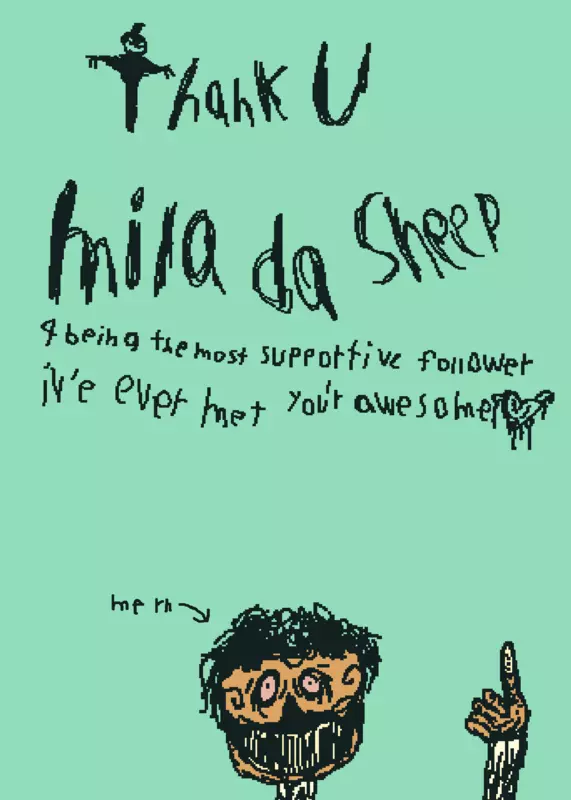 Thank U
mila da Sheep
4 being the most supportive follower
iv'e ever met you'r awesome
me rn